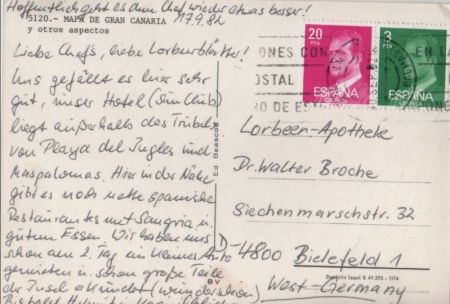 Hoffentlich geht es dem Chef wieder etwas besser!
5120.- MAPA DE GRAN CANARIA
y otros aspectos
17.9.82
Liebe Chefs, liebe Lorbeerblätter!
Uns gefällt es hier sehr
gut, unser Hotel (Sun Club)
liegt außerhalb des Trubels
von Playa del Ingles und
Maspalomas. Hier in der Nähe
gibt es noch nette spanische
Restaurants mit Sangria u.
gutem Essen. Wir haben uns
schon am 2. Tag ein kleines Auto
gemietet u. schon große Teile
der Insel erkundet (wunderschön)
Ed. Beascoa
BV
20
PTA
ESPAÑA
3
PTA
ESPAÑA
Lorbeer-Apotheke
Dr. Walter Broche
Siechenmarschstr. 32
D-4800 Bielefeld 1
Depósito Legal B 49.290 - 1974
West-Germany